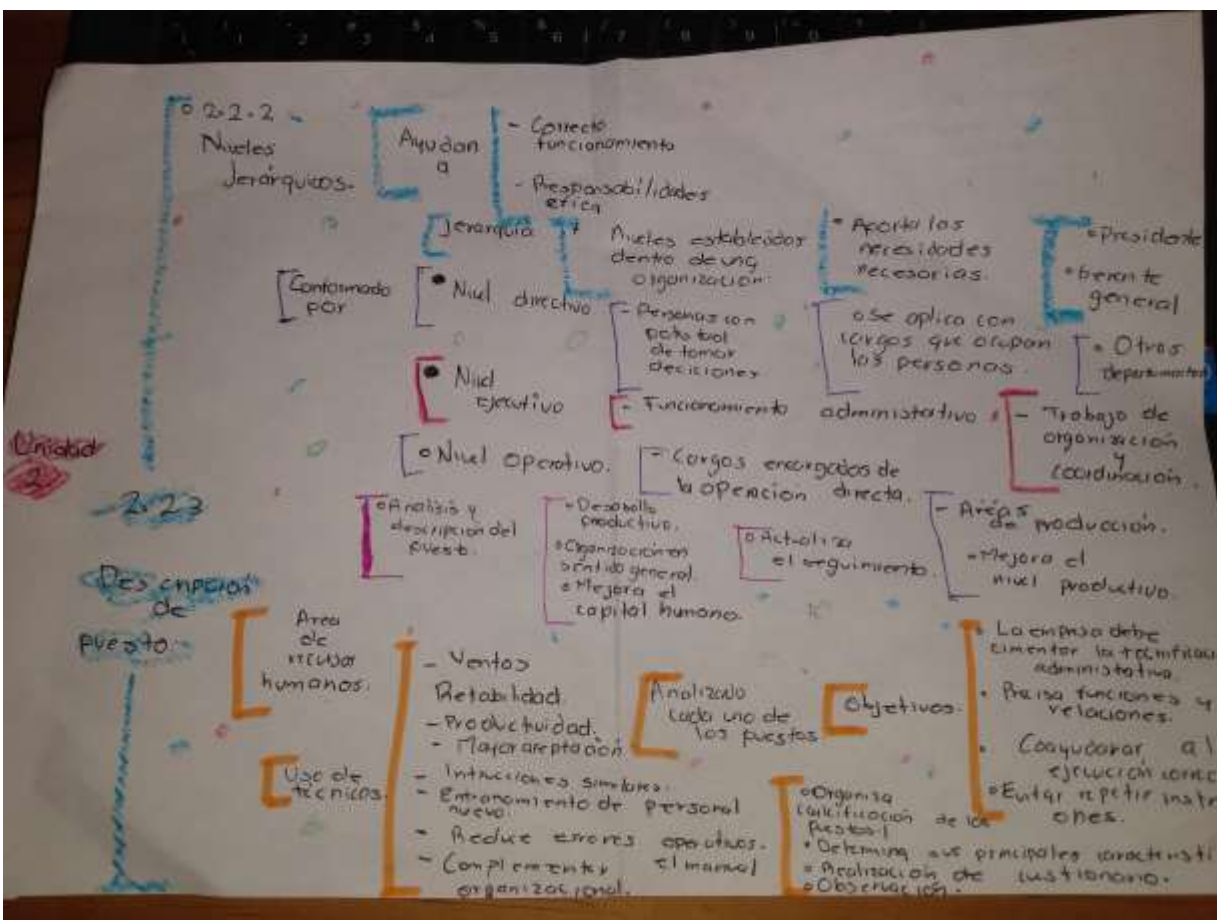 Unidad
2
o 2.2.2
Niveles
Jerárquicos.
Ayudan
a
- Correcto
funcionamiento
- Responsabilidades
etica
Jerarquia
Niveles establecidos
dentro de una
organizacion.
Aporta las
necesidades
necesarias.
Presidente
Gerente
general
Conformado
por
Nivel directivo
- Personas con
de tomar
decisiones
o Se aplica con
cargos que ocupan
las personas
Otros
departamentos
Nivel
ejecutivo
- Funcionamiento administrativo
- Trabajo de
organización
y
coordinación.
o Nivel operativo.
- Cargos encargados de
la operacion directa.
- Areas
de producción.
- Mejora el
nivel productivo.
2.2.3
Descripcion
de
puesto
o Analisis y
descripcion del
puest.
- Desarollo
productivo.
o Organización en
sentido general.
o Mejora el
capital humano.
o Actualiza
el seguimiento.
Area
de
recursos
humanos.
- Ventas
Retabilidad.
- Productividad.
- Mayor aceptación
Analizado
cada uno de
los puestos
Objetivos.
La empresa debe
cimentar la
administrativa.
Precisa funciones y
relaciones.
Coayudarar al
ejecución
o Evitar repetir
ones.
Uso de
técnicas.
- Intrucciones similares.
- Entranamiento de personal
nuevo.
- Reduce errores operativos.
- Complementer el manual
organizacional.
o Organiza
calificación de los
puestos
Determina sus principales
Realización de custionario.
o Observación.